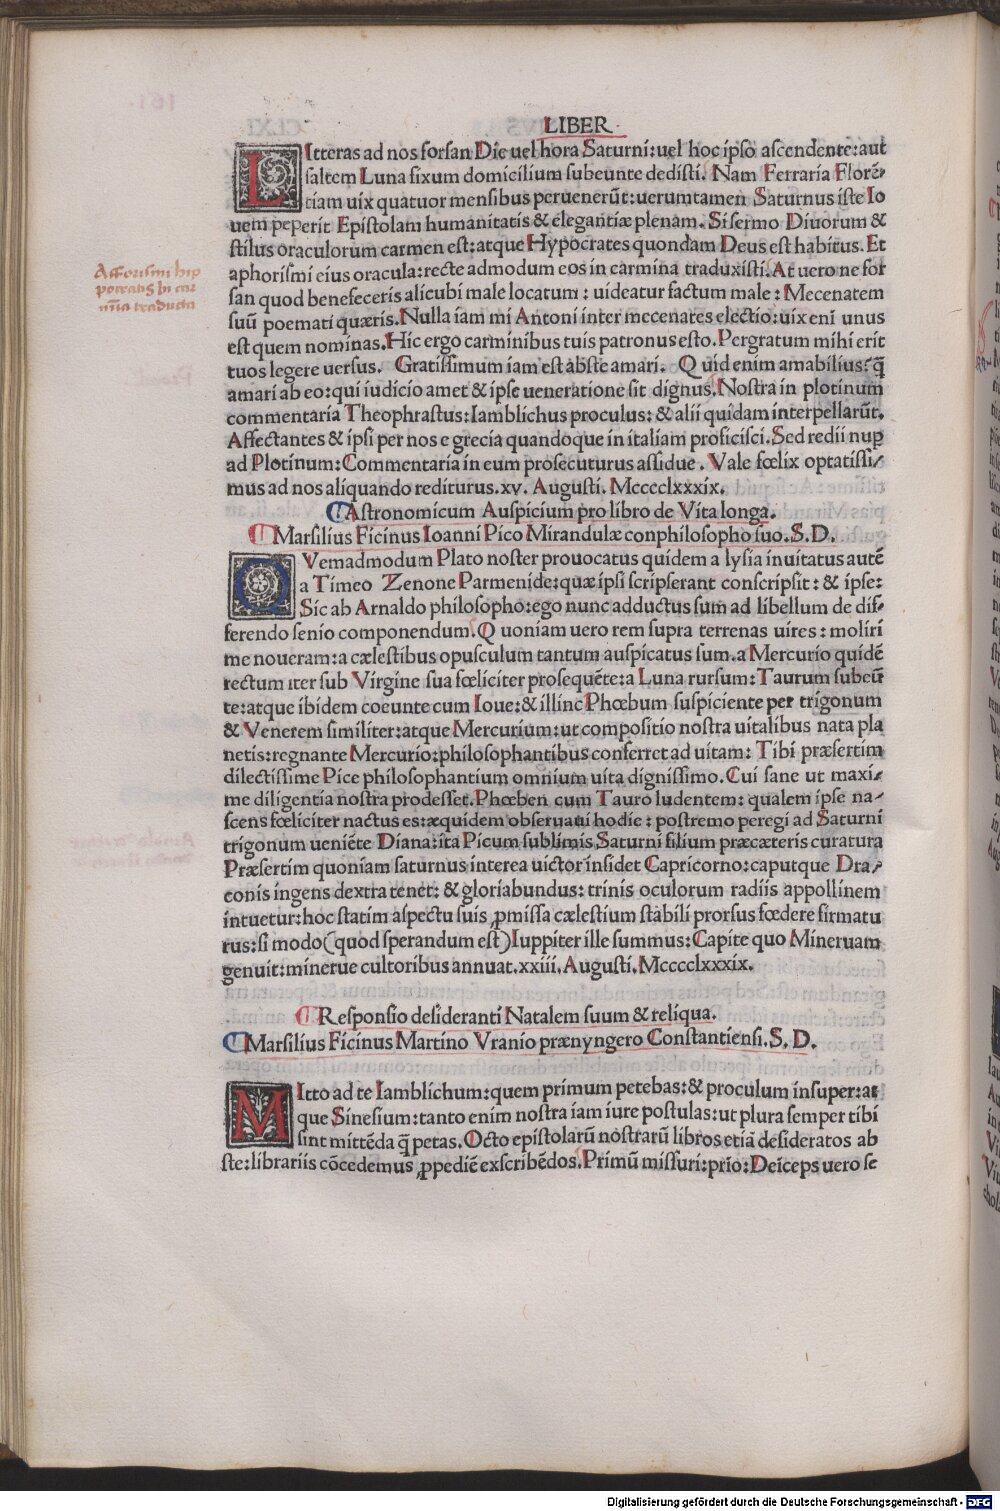 LIBER
LItteras ad nos forsan Die uel hora Saturni: uel hoc ipso ascendente: aut
saltem Luna fixum domicilium subeunte dedisti. Nam Ferraria Florē-
tiam uix quatuor mensibus peruenerūt: uerumtamen Saturnus iste Io
uem peperit Epistolam humanitatis & elegantiæ plenam. Si sermo Diuorum &
stilus oraculorum carmen est: atque Hypocrates quondam Deus est habitus. Et
aphorismi eius oracula: recte admodum eos in carmina traduxisti. At uero ne for
san quod benefeceris alicubi male locatum: uideatur factum male: Mecenatem
suū poemati quæris. Nulla iam mi Antoni inter mecenates electio: uix eni unus
est quem nominas. Hic ergo carminibus tuis patronus esto. Pergratum mihi erit
tuos legere uersus. Gratissimum iam est abs te amari. Quid enim amabilius? q̄
amari ab eo: qui iudicio amet & ipse ueneratione sit dignus. Nostra in plotinum
commentaria Theophrastus: Iamblichus proculus: & alii quidam interpellarūt.
Affectantes & ipsi per nos e grecia quandoque in italiam proficisci. Sed redii nuꝑ
ad Plotinum: Commentaria in eum prosecuturus assidue. Vale fœlix optatissi-
mus ad nos aliquando rediturus. xv. Augusti. Mcccclxxxix.
Astronomicum Auspicium pro libro de Vita longa.
Marsilius Ficinus Ioanni Pico Mirandulæ conphilosopho suo. S. D.
QVemadmodum Plato noster prouocatus quidem a lysia inuitatus autē
a Timeo Zenone Parmenide: quæ ipsi scripserant conscripsit: & ipse:
Sic ab Arnaldo philosopho: ego nunc adductus sum ad libellum de dif-
ferendo senio componendum. Quoniam uero rem supra terrenas uires: moliri
me noueram: a cælestibus opusculum tantum auspicatus sum. a Mercurio quidē
rectum iter sub Virgine sua fœliciter prosequēte: a Luna rursum: Taurum subeū
te: atque ibidem coeunte cum Ioue: & illinc Phœbum suspiciente per trigonum
& Venerem similiter: atque Mercurium: ut compositio nostra uitalibus nata pla
netis: regnante Mercurio: philosophantibus conferret ad uitam: Tibi præsertim
dilectissime Pice philosophantium omnium uita dignissimo. Cui sane ut maxi-
me diligentia nostra prodesset. Phœben cum Tauro ludentem: qualem ipse na-
scens fœliciter nactus es: æquidem obseruaui hodie: postremo peregi ad Saturni
trigonum ueniēte Diana: ita Picum sublimis Saturni filium præcæteris curatura
Præsertim quoniam saturnus interea uictor insidet Capricorno: caputque Dra-
conis ingens dextra tenet: & gloriabundus: trinis oculorum radiis appollinem
intuetur: hoc statim aspectu suis ꝓmissa cælestium stabili prorsus fœdere firmatu
rus: si modo (quod sperandum est) Iuppiter ille summus: Capite quo Mineruam
genuit: minerue cultoribus annuat. xxiii. Augusti. Mcccclxxxix.
Responsio desideranti Natalem suum & reliqua.
Marsilius Ficinus Martino Vranio prænyngero Constantiensi. S. D.
MItto ad te Iamblichum: quem primum petebas: & proculum insuper: at
que Sinesium: tanto enim nostra iam iure postulas: ut plura semper tibi
sint mittēda q̄ petas. Octo epistolarū nostrarū libros etiā desideratos ab
ste: librariis cōcedemus ꝓpediē exscribēdos. Primū missuri: prio: Deiceps uero se
Afforismi hip
pocratis in car
mina traducta
Digitalisierung gefördert durch die Deutsche Forschungsgemeinschaft - DFG